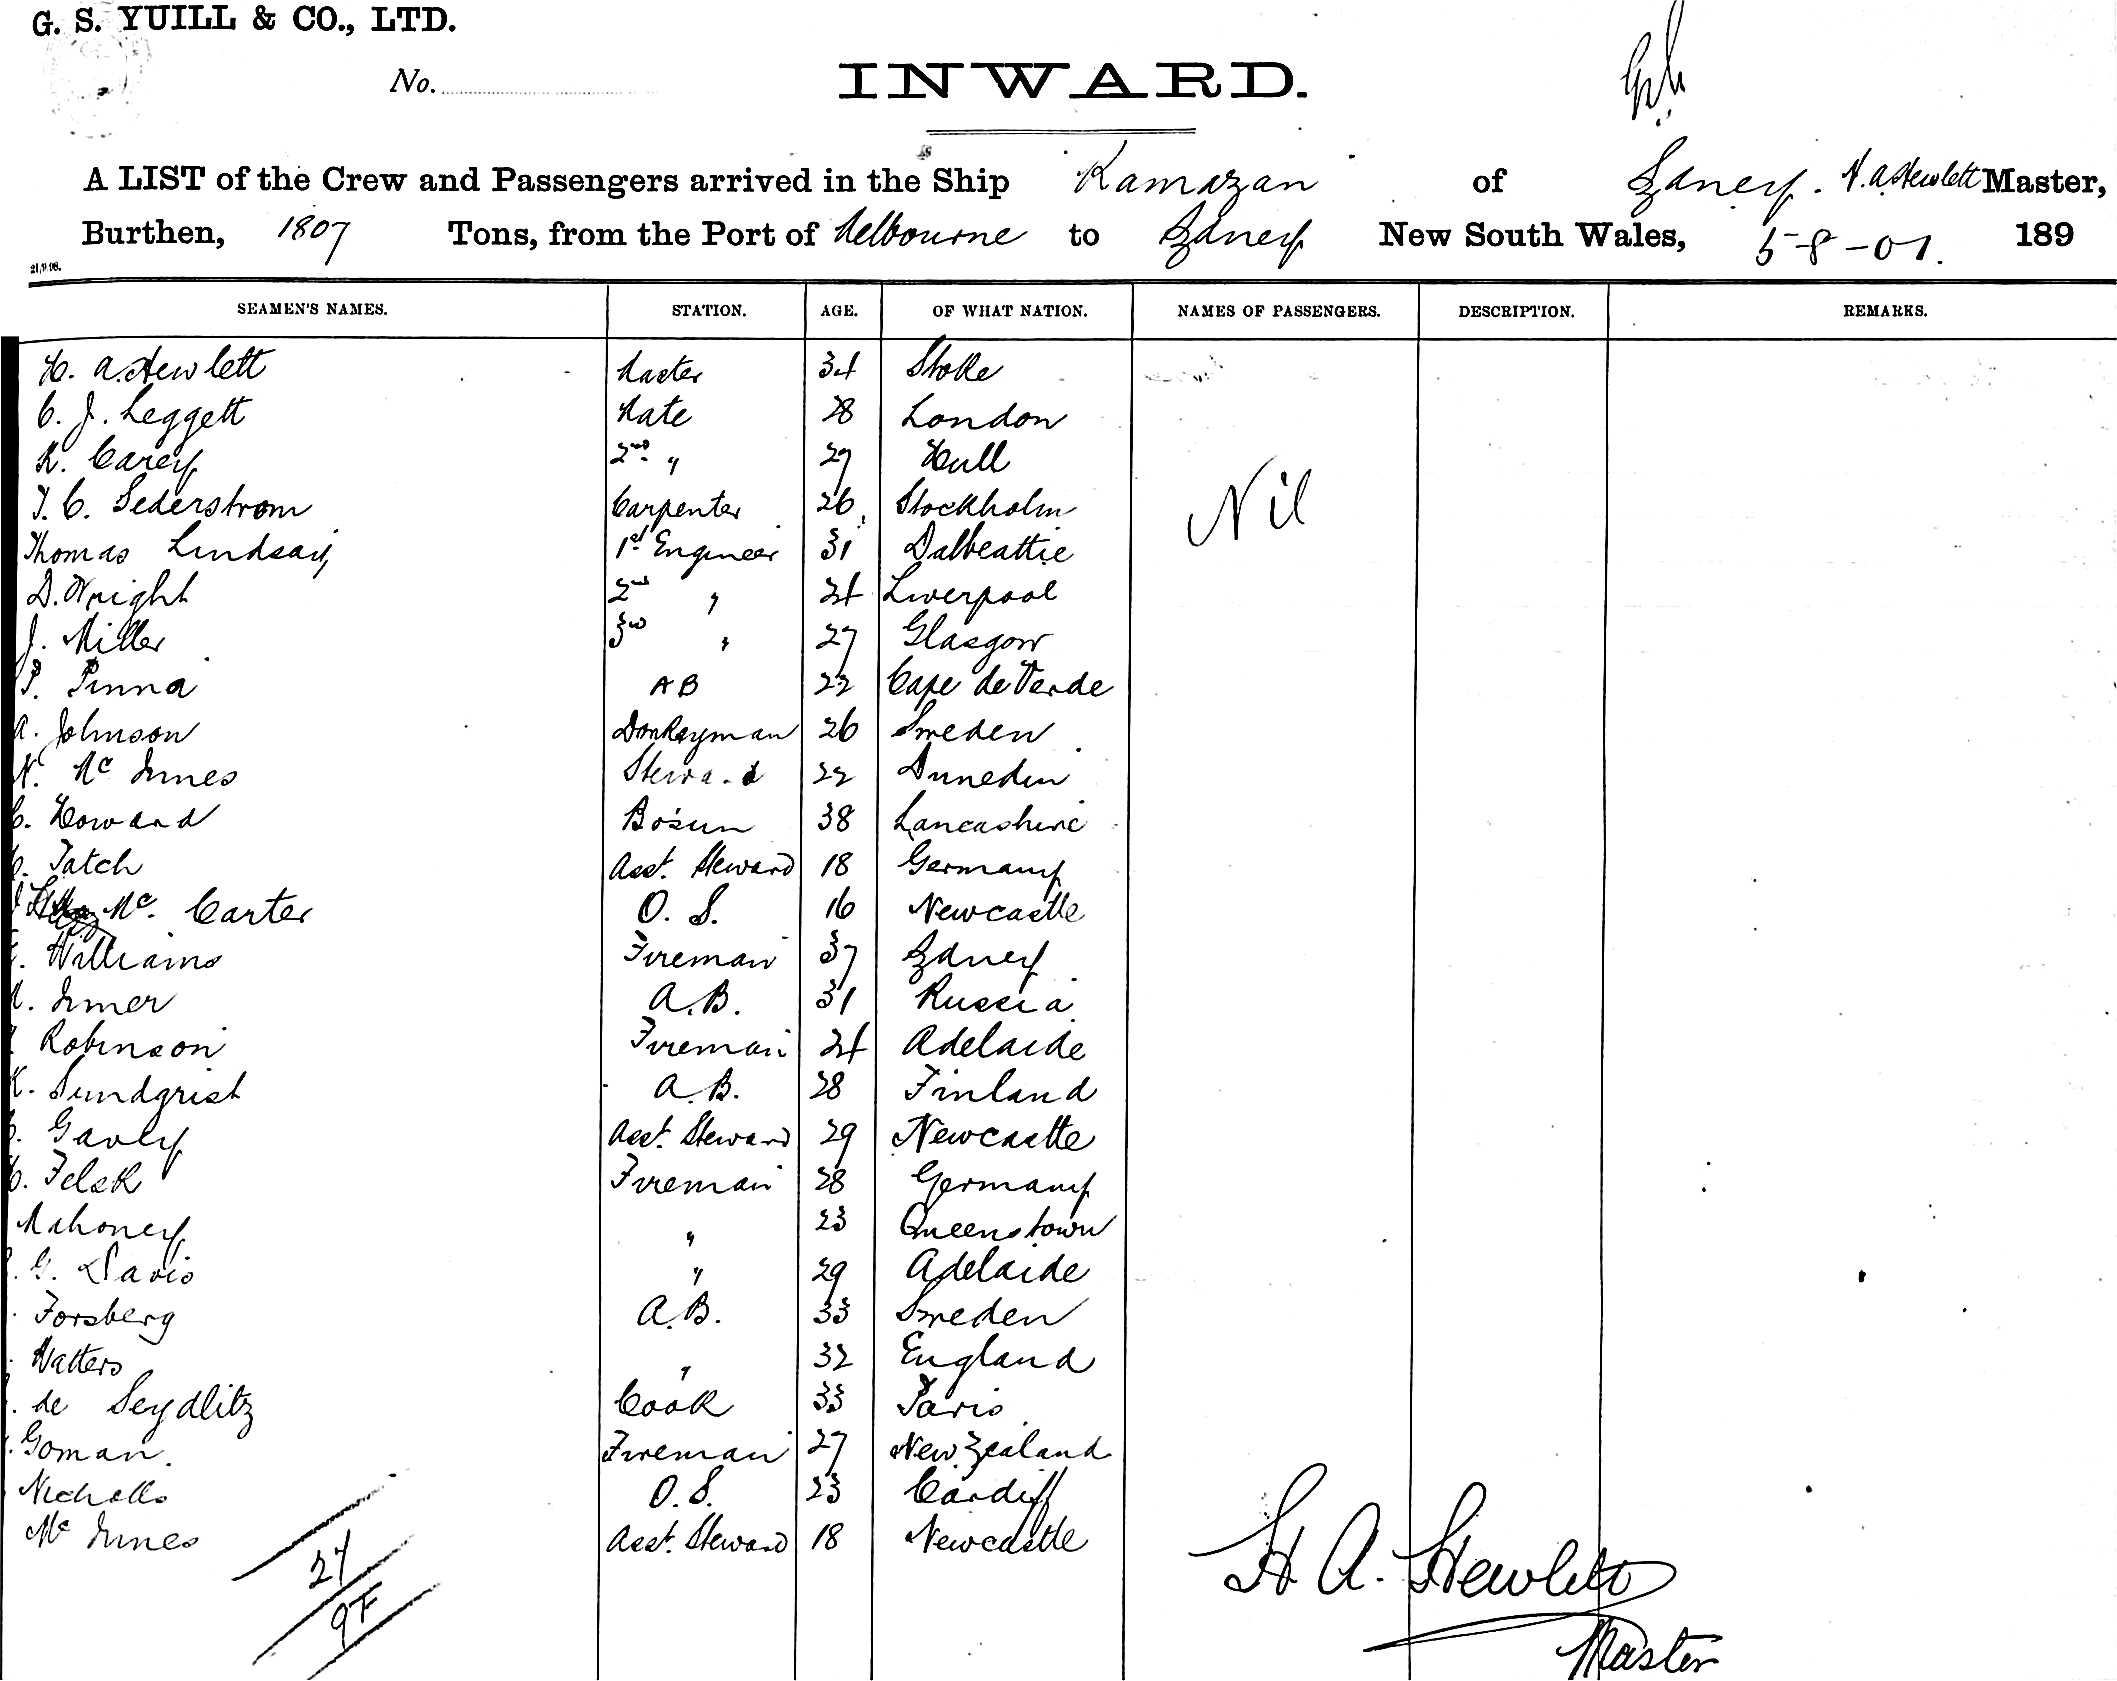 G. S. YUILL & CO., LTD.
No.
INWARD.
A LIST of the Crew and Passengers arrived in the Ship Ramazan of Sydney. H. A. Hewlett Master,
Burthen, 1807 Tons, from the Port of Melbourne to Sydney New South Wales, 5-8-01. 189
21/9/98.
SEAMEN'S NAMES. STATION. AGE. OF WHAT NATION. NAMES OF PASSENGERS. DESCRIPTION. REMARKS.
H. A. Hewlett Master 34 Stoke
C. J. Leggett Mate 28 London
R. Carey 2nd " 27 Hull
Nil
T. C. Sederstrom Carpenter 26 Stockholm
Thomas Lindsay 1st Engineer 31 Dalbeattie
D. Wright 2nd " 24 Liverpool
J. Miller 3rd " 27 Glasgow
P. Pinna AB 22 Cape de Verde
A. Johnson Donkeyman 26 Sweden
N. Mc Innes Steward 22 Dunedin
C. Howard Bo'sun 38 Lancashire
Tatch Asst. Steward 18 Germany
Mc. Carter O. S. 16 Newcastle
Williams Fireman 37 Sydney
Irmer A.B. 31 Russia
Robinson Fireman 24 Adelaide
K. Sundqrist A.B. 28 Finland
Gavey Asst. Steward 29 Newcastle
Felsk Fireman 28 Germany
Mahoney " 23 Queenstown
G. Davis " 29 Adelaide
Forsberg A.B. 33 Sweden
Watters " 32 England
de Seydlitz Cook 33 Paris
Goman. Fireman 27 New Zealand
Nicholls O.S. 23 Cardiff
Mc Innes Asst. Steward 18 Newcastle
27
9F
H. A. Hewlett
Master